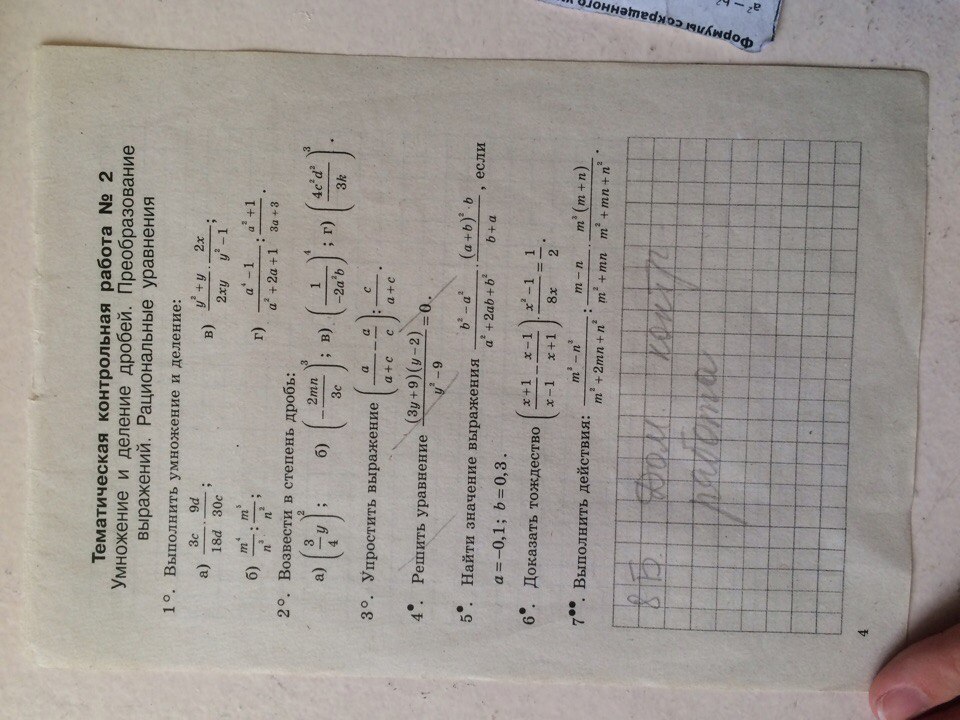 Тематическая контрольная работа № 2
Умножение и деление дробей. Преобразование
выражений. Рациональные уравнения
1°. Выполнить умножение и деление:
а) 3c/18d · 9d/30c; в) (y²+y)/2xy · 2x/(y²−1);
б) m⁴/n³ : m⁵/n²; г) (a⁴−1)/(a²+2a+1) : (a²+1)/(3a+3).
2°. Возвести в степень дробь:
а) (3/4 y)²; б) (−2mn/3c)³; в) (1/−2a²b)⁴; г) (4c²d³/3k)³.
3°. Упростить выражение (a/(a+c) − a/c) : c/(a+c).
4•. Решить уравнение (3y+9)(y−2)/(y²−9) = 0.
5•. Найти значение выражения (b²−a²)/(a²+2ab+b²) · (a+b)²·b/(b+a), если
a=−0,1; b=0,3.
6•. Доказать тождество ((x+1)/(x−1) − (x−1)/(x+1)) · (x²−1)/8x = 1/2.
7••. Выполнить действия: (m³−n³)/(m²+2mn+n²) : (m−n)/(m²+mn) · m³(m+n)/(m²+mn+n²).
8 Б Дом контр
работа
4
Формулы сокращенного
a² − b²